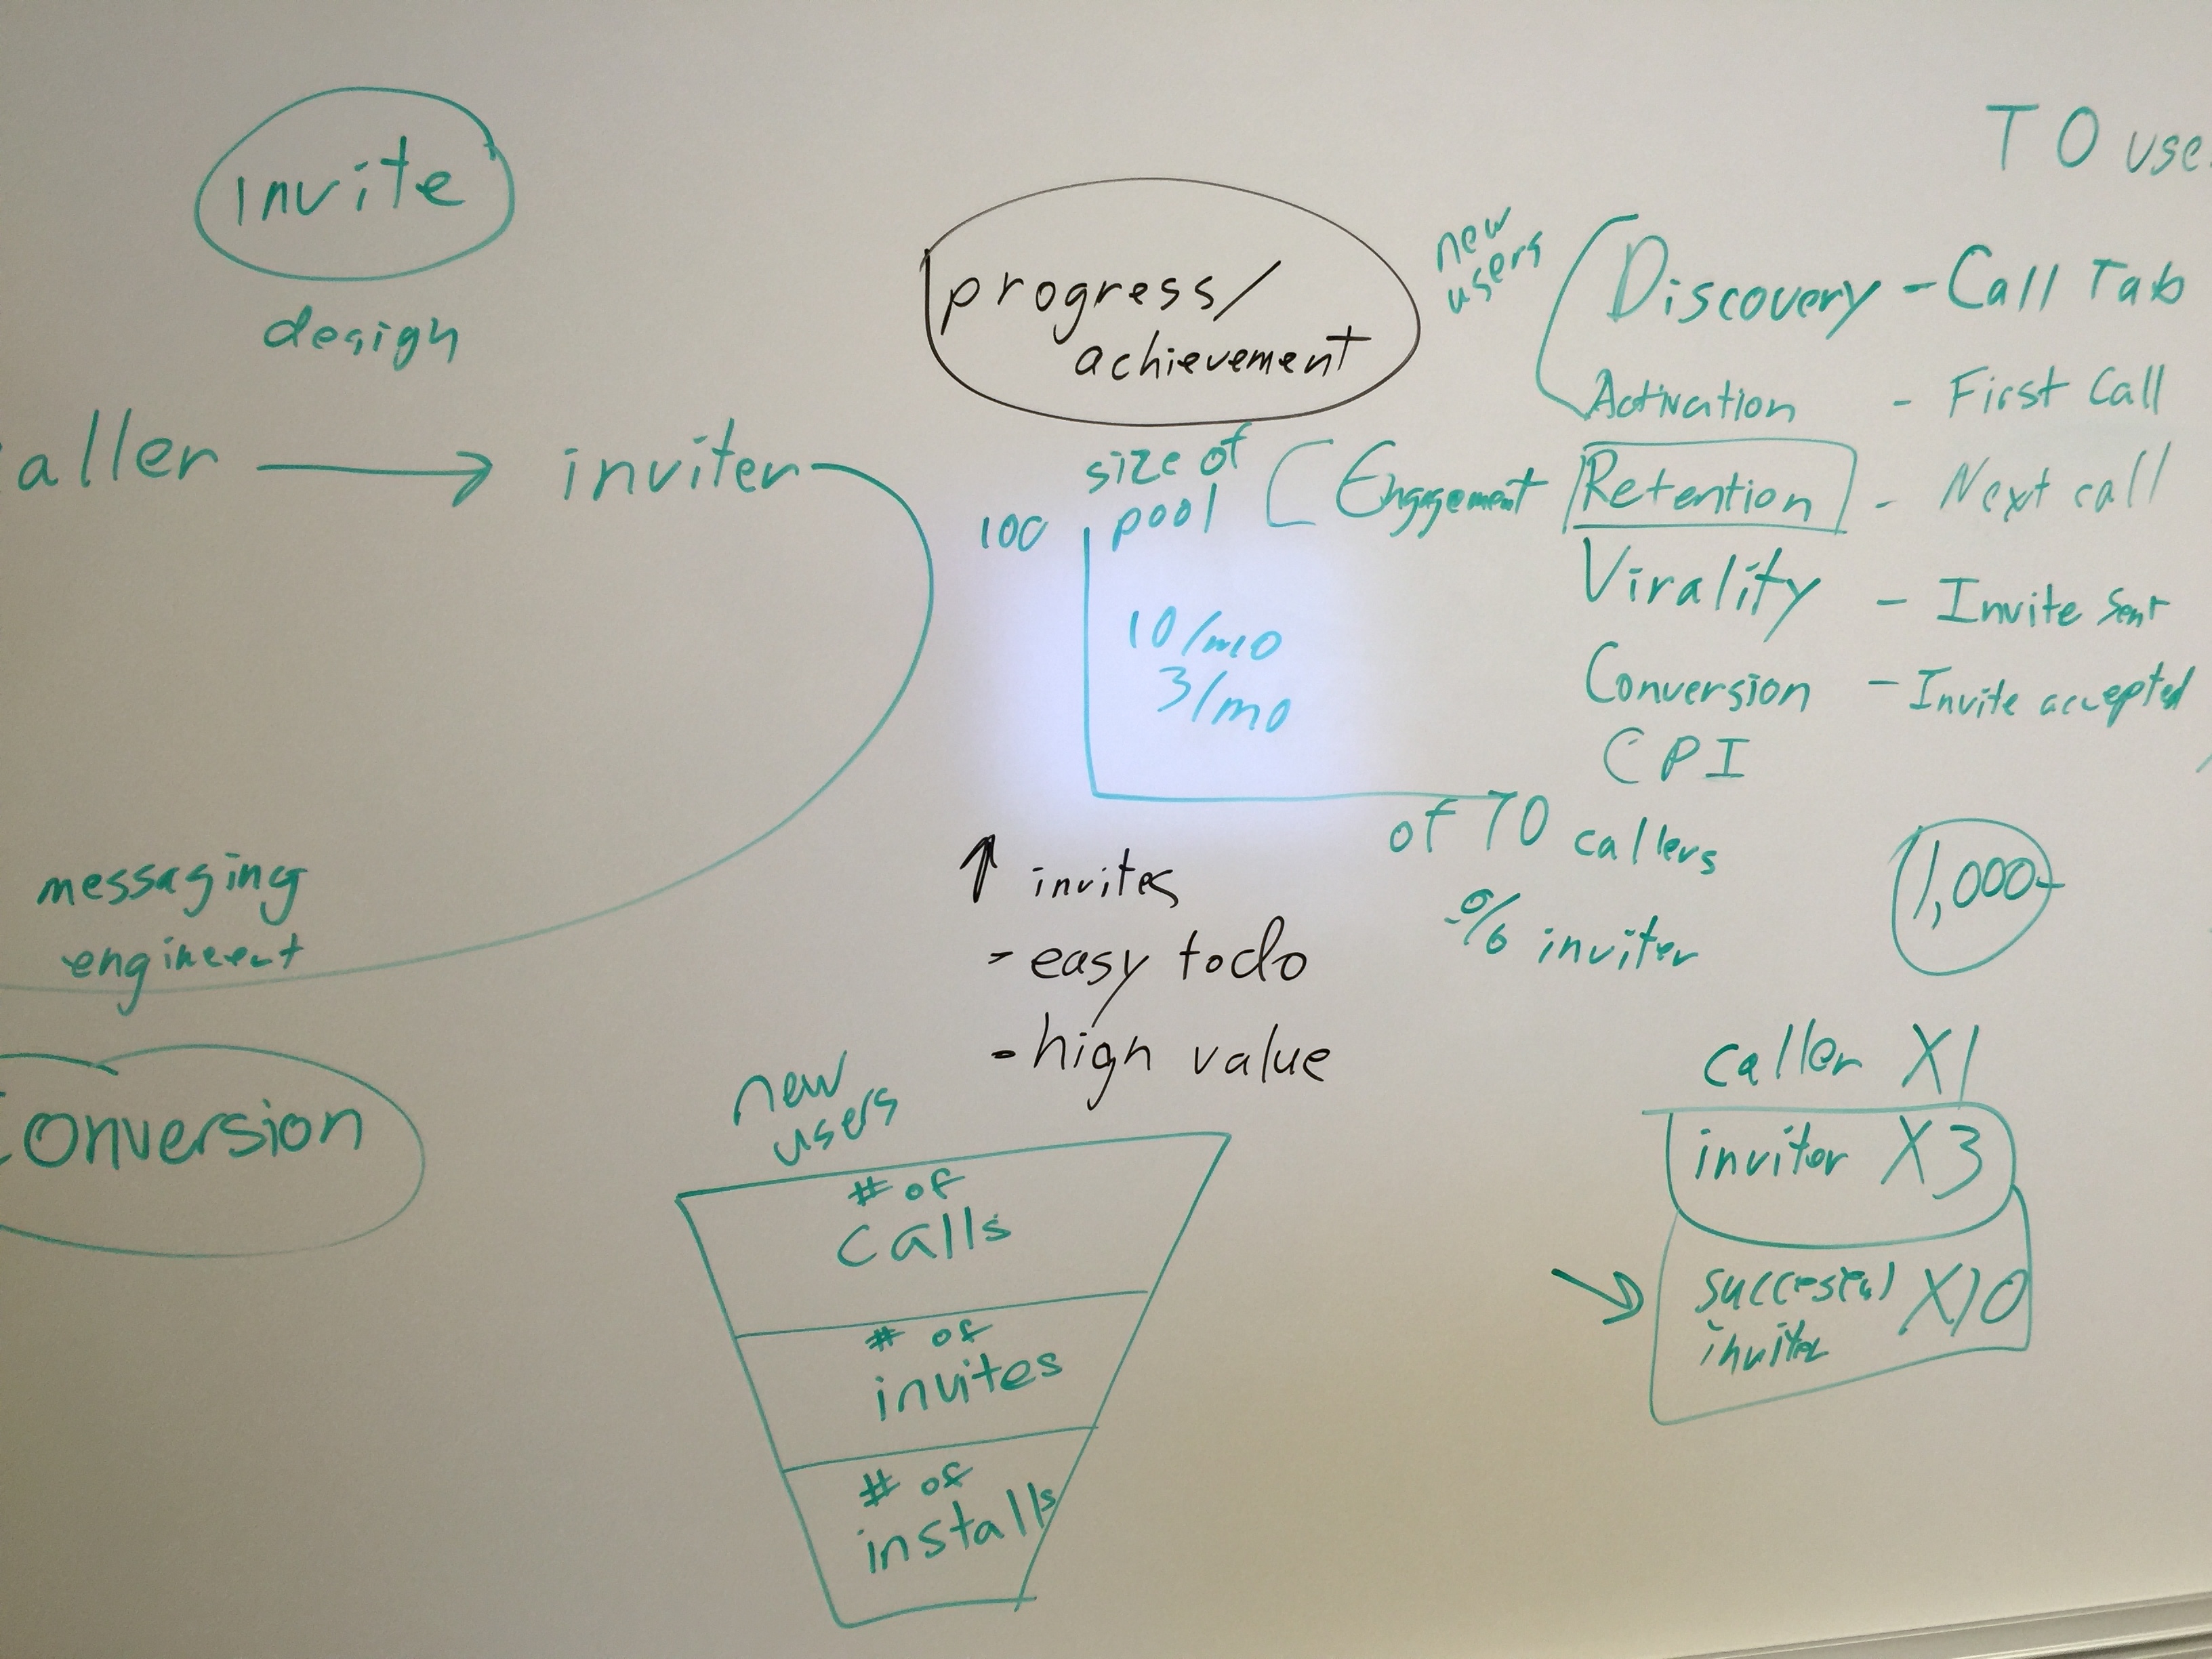 invite
design
aller → inviter
messaging
onversion
progress/
achievement
size of
pool
100
10/mo
3/mo
of 70 callers
% inviter
↑ invites
- easy to do
- high value
new
users
# of
calls
# of
invites
# of
installs
TO use
new
users
Discovery - Call Tab
Activation - First Call
Engagement Retention - Next call
Virality - Invite Sent
Conversion - Invite accepted
CPI
1,000
caller X1
invitor X3
X10
inviter